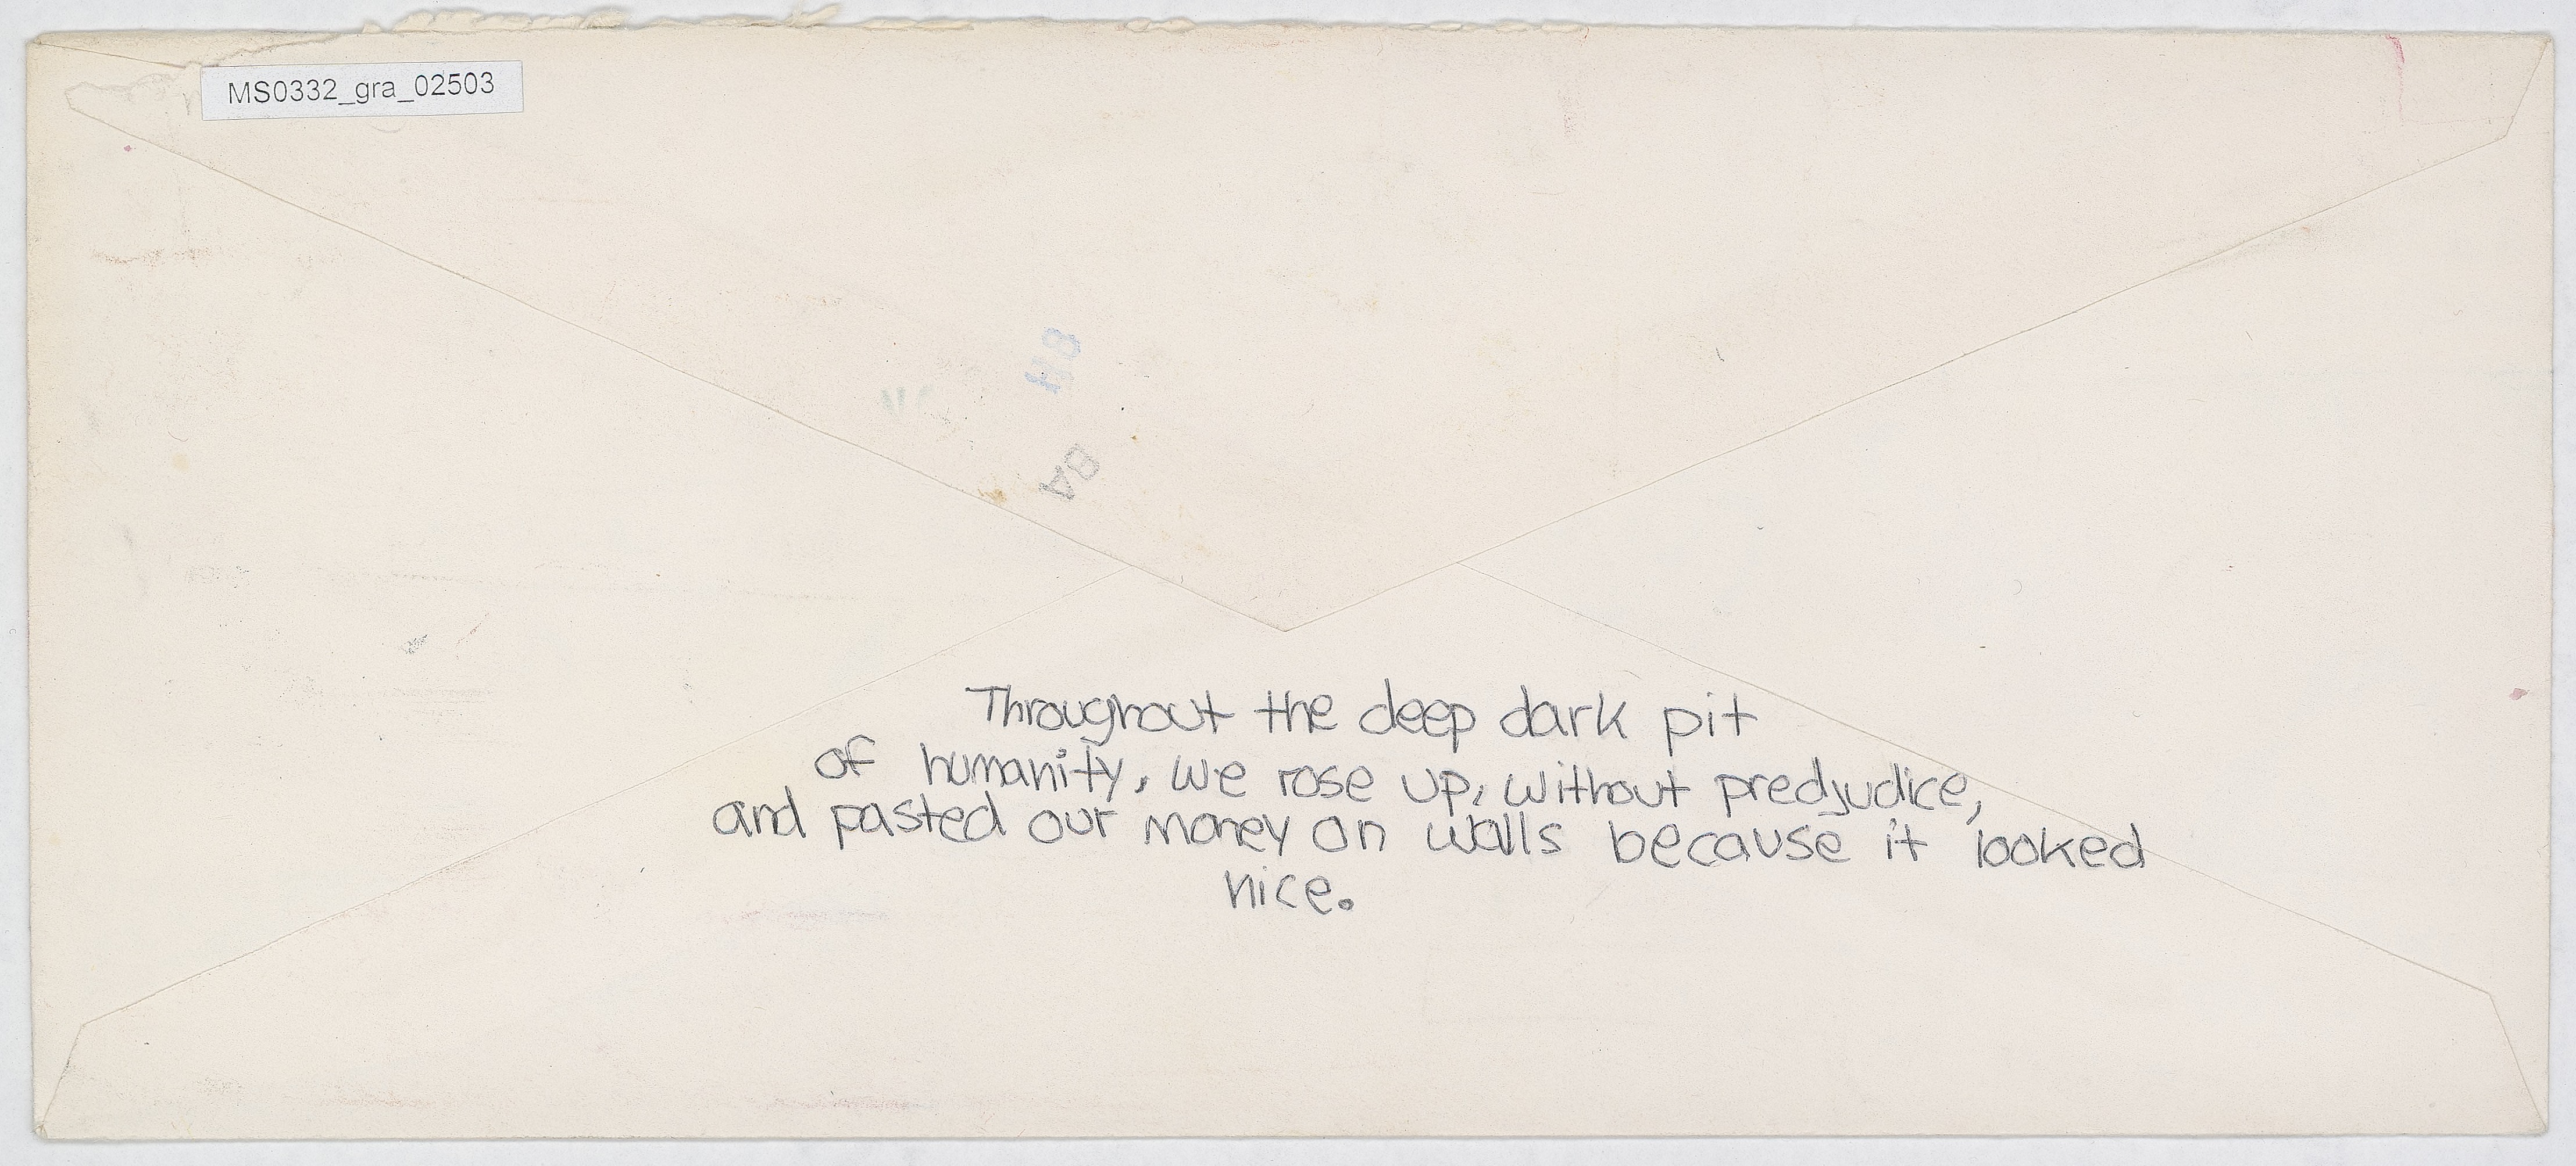 MS0332_gra_02503
Throughout the deep dark pit
of humanity, we rose up, without predjudice,
and pasted our money on walls because it looked
nice.